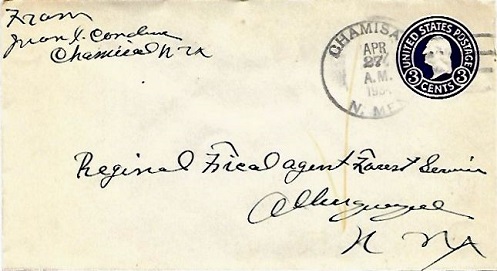 From
Juan I. Condine
Chamisal N M
CHAMISA
APR
27
A.M.
193
N. MEX
UNITED STATES POSTAGE
3 CENTS 3
Reginal Fiscal agent Forest Service
Albuquerque
N M